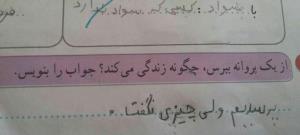 با سواد : کسی که سواد دارد
از یک پروانه بپرس، چگونه زندگی می‌کند؟ جواب را بنویس.
پرسیدم ولی چیزی نگفت